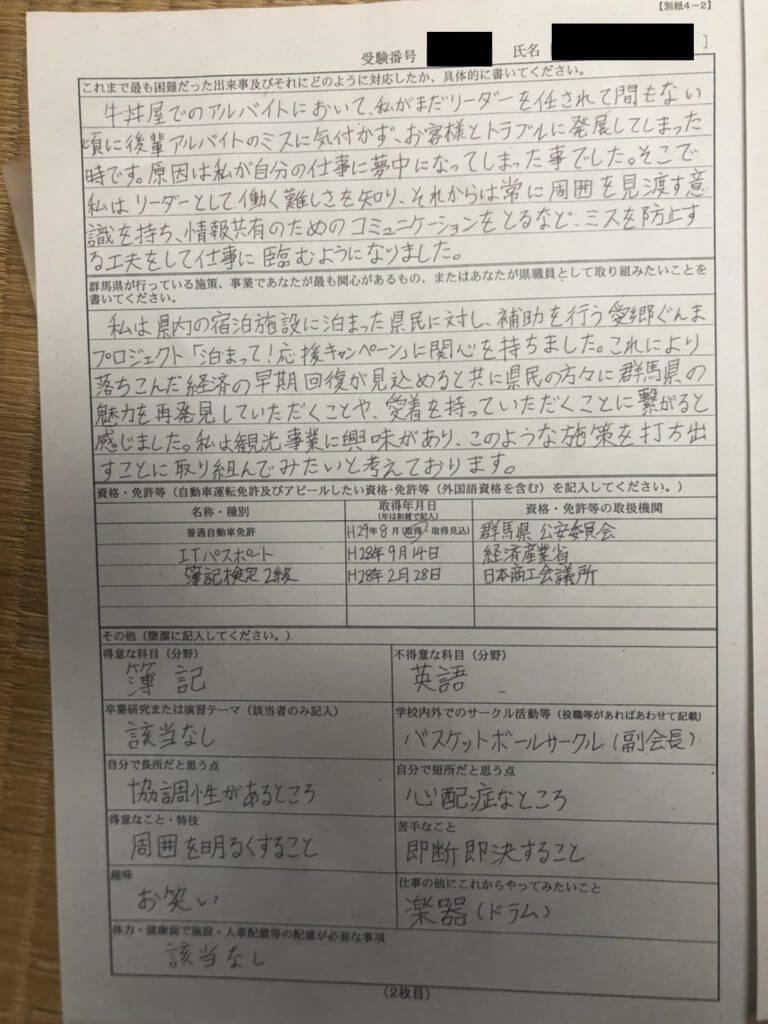 【別紙4-2】
受験番号 氏名 ]
これまで最も困難だった出来事及びそれにどのように対応したか、具体的に書いてください。
牛丼屋でのアルバイトにおいて、私がまだリーダーを任されて間もない
頃に後輩アルバイトのミスに気付かず、お客様とトラブルに発展してしまった
時です。原因は私が自分の仕事に夢中になってしまった事でした。そこで
私はリーダーとして働く難しさを知り、それからは常に周囲を見渡す意
識を持ち、情報共有のためのコミュニケーションをとるなど、ミスを防止す
る工夫をして仕事に臨むようになりました。
群馬県が行っている施策、事業であなたが最も関心があるもの、またはあなたが県職員として取り組みたいことを
書いてください。
私は県内の宿泊施設に泊まった県民に対し、補助を行う愛郷ぐんま
プロジェクト「泊まって!応援キャンペーン」に関心を持ちました。これにより
落ちこんだ経済の早期回復が見込めると共に県民の方々に群馬県の
魅力を再発見していただくことや、愛着を持っていただくことに繋がると
感じました。私は観光事業に興味があり、このような施策を打ち出
すことに取り組んでみたいと考えております。
資格・免許等(自動車運転免許及びアピールしたい資格・免許等(外国語資格を含む)を記入してください。)
名称・種別 取得年月日 資格・免許等の取扱機関
(年は和暦で記入)
普通自動車免許 H29年8月(取得・取得見込) 群馬県公安委員会
ITパスポート H28年9月14日 経済産業省
簿記検定2級 H28年2月28日 日本商工会議所
その他(簡潔に記入してください。)
得意な科目(分野) 不得意な科目(分野)
簿記 英語
卒業研究または演習テーマ(該当者のみ記入) 学校内外でのサークル活動等(役職等があればあわせて記載)
該当なし バスケットボールサークル(副会長)
自分で長所だと思う点 自分で短所だと思う点
協調性があるところ 心配症なところ
得意なこと・特技 苦手なこと
周囲を明るくすること 即断即決すること
趣味 仕事の他にこれからやってみたいこと
お笑い 楽器(ドラム)
体力・健康面で施設・人事配置等の配慮が必要な事項
該当なし
(2枚目)